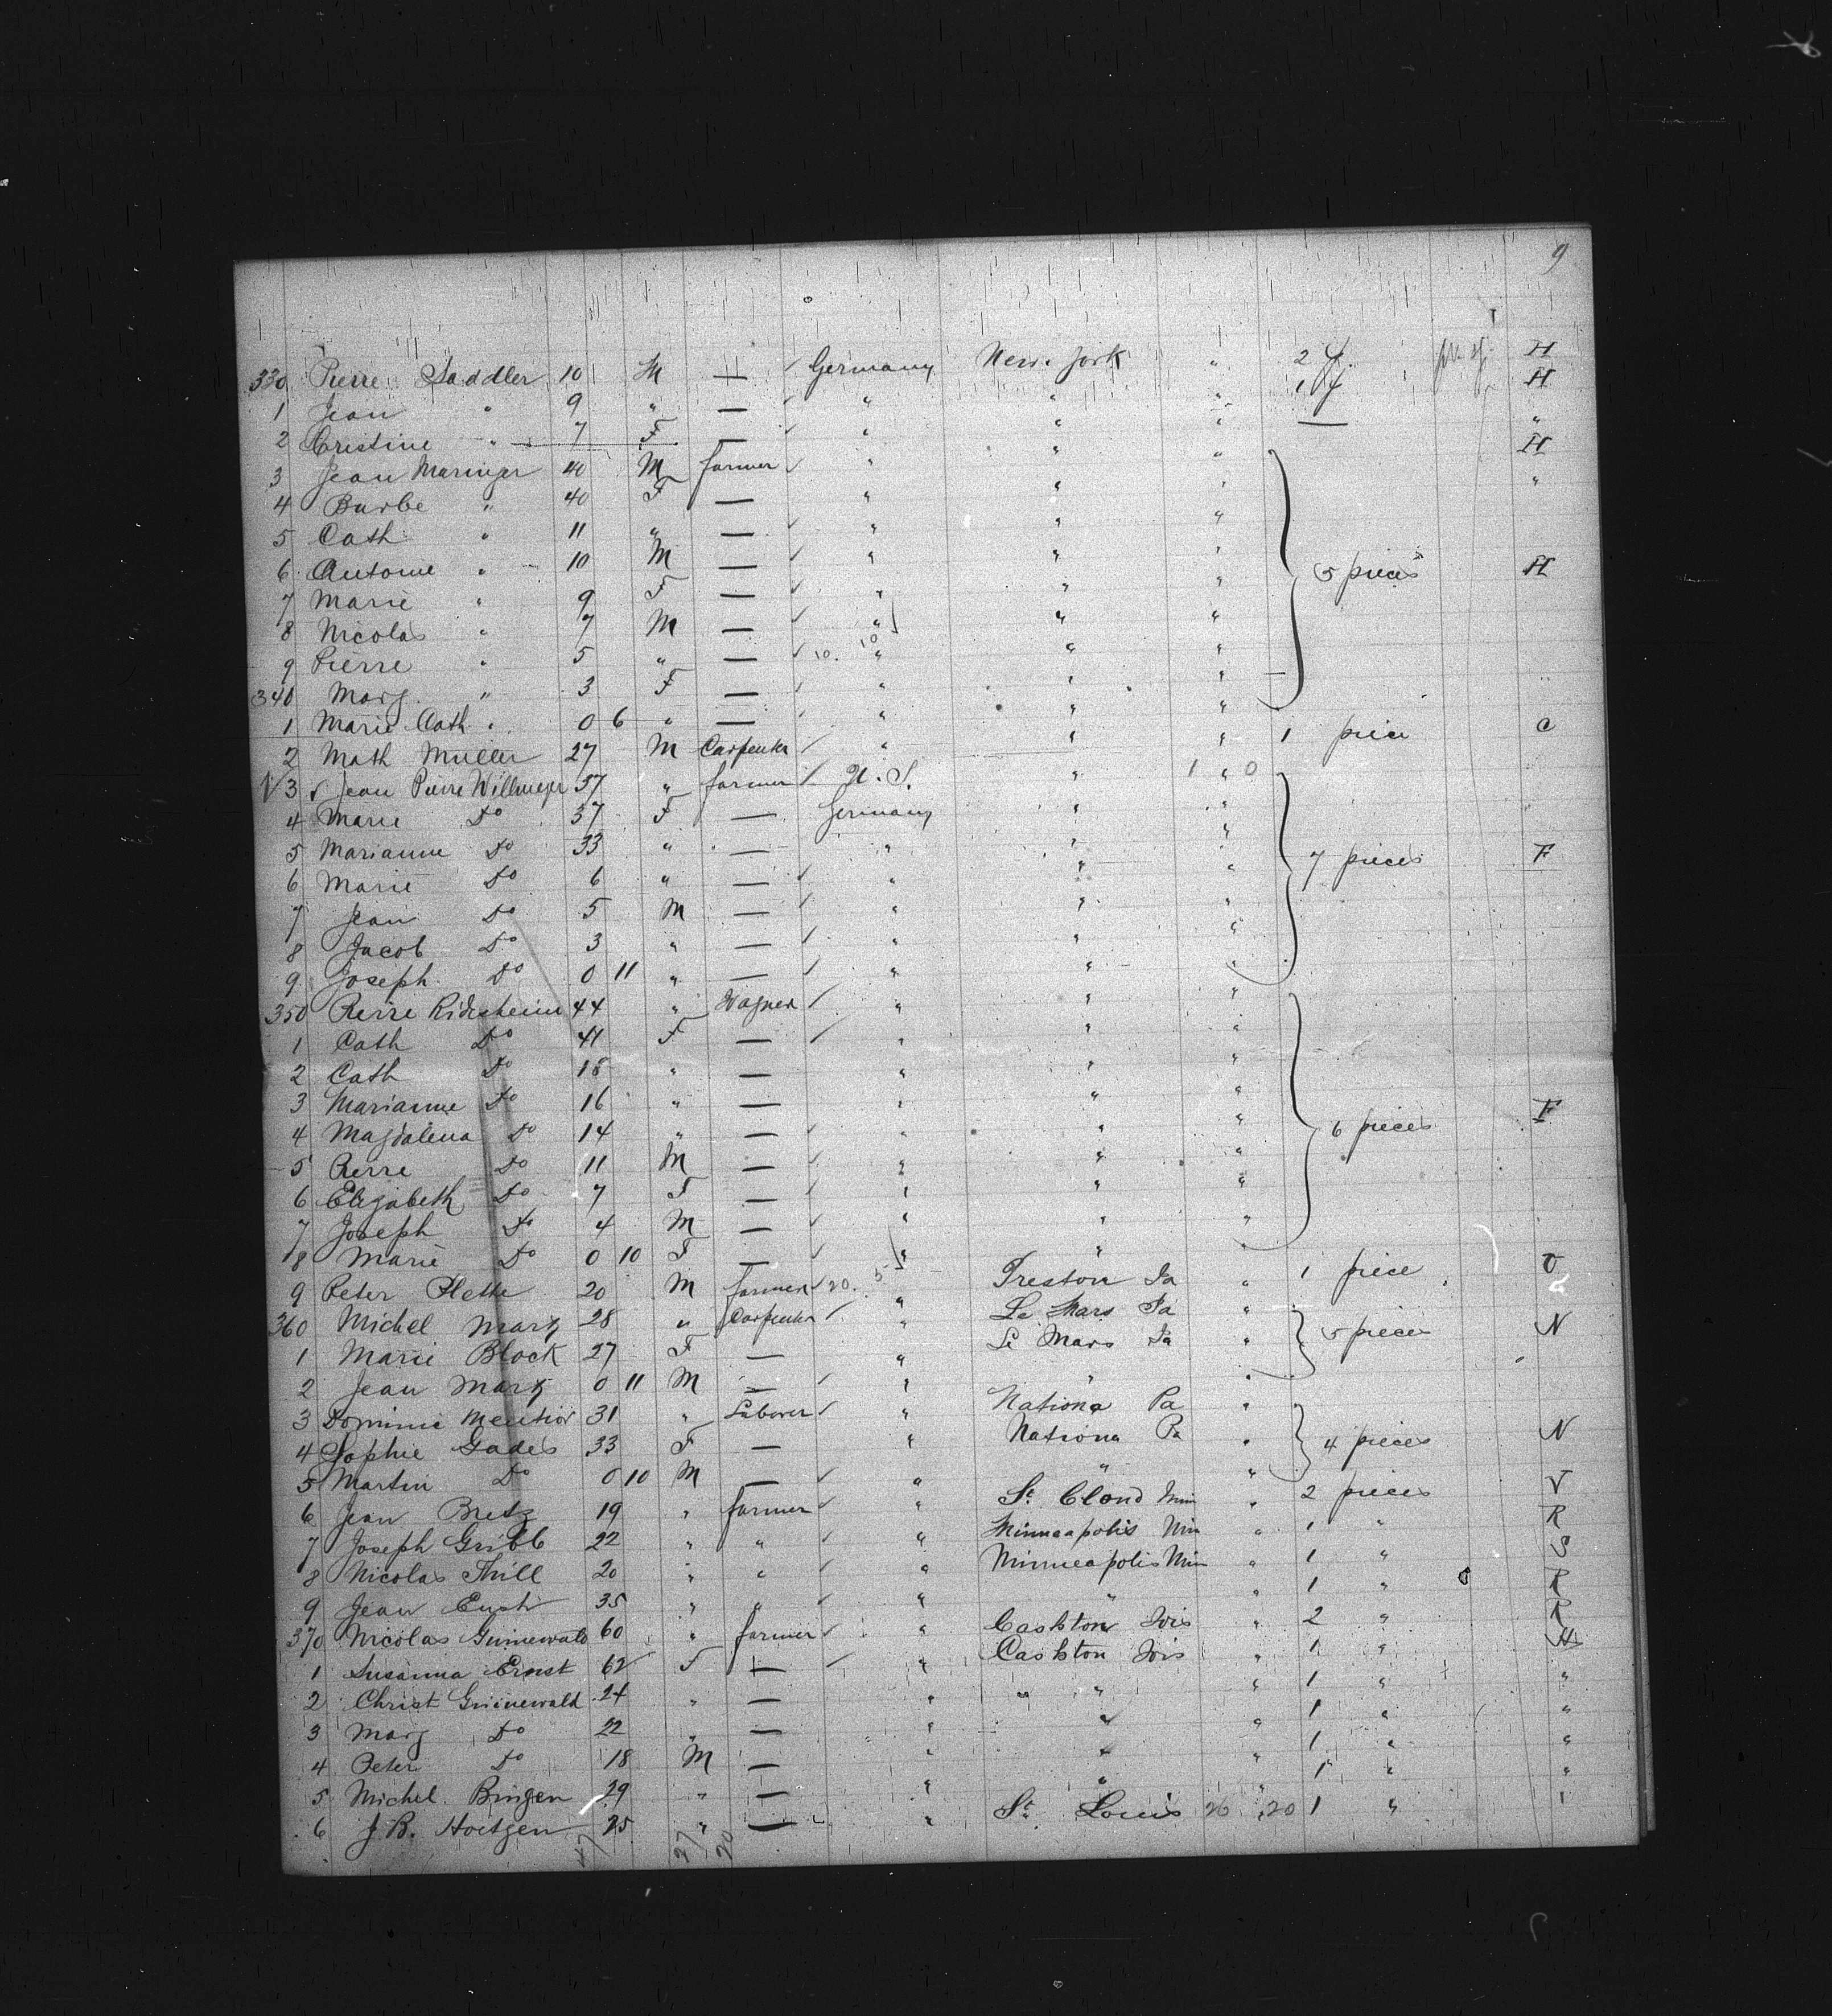 9
330 Pierre Saddler 10 M — Germany New York " 2 H
1 Jean " 9 " — " " " 1 H
2 Cristine " 7 F — " " " — "
3 Jean Maringer 40 M farmer " " " H
4 Barbe " 40 F — " " " "
5 Cath " 11 " — " " "
6 Antoine " 10 M — " " " 5 pieces H
7 Marie " 9 F — " " "
8 Nicolas " 7 M — " " "
9 Pierre " 5 " — 10. 10 " " "
340 Marg. " 3 F — " " "
1 Marie Cath " 0 6 " — " " "
2 Math Muller 27 M Carpenter " " " 1 piece C
3 Jean Pierre Willmeyer 37 " farmer U. S. " 1 " 0
4 Marie Do 37 F — Germany " "
5 Marianne Do 33 " — " " "
6 Marie Do 6 " — " " " 7 pieces F
7 Jean Do 5 M — " " "
8 Jacob Do 3 " — " " "
9 Joseph Do 0 11 " — " " "
350 Pierre Ridesheim 44 " Wagner " " "
1 Cath Do 41 F — " " "
2 Cath Do 18 " — " " "
3 Marianne Do 16 " — " " "
4 Magdalena Do 14 " — " " " 6 pieces F
5 Pierre Do 11 M — " " "
6 Elizabeth Do 7 F — " " "
7 Joseph Do 4 M — " " "
8 Marie Do 0 10 F — " " "
9 Peter Plette 20 M farmer 20. 5 " Preston Ia " 1 piece O
360 Michel Marz 28 " Carpenter " Le Mars Ia " 5 pieces N
1 Marie Block 27 F — " Le Mars Ia "
2 Jean Marz 0 11 M — " " "
3 Dominic Mentior 31 " Laborer " Nationa Pa " 4 pieces N
4 Sophie Gades 33 F — " Nationa Pa "
5 Martin Do 0 10 M — " " "
6 Jean Bretz 19 " farmer " St. Cloud Min " 2 pieces V
7 Joseph Gribb 22 " " " Minneapolis Min " 1 " R
8 Nicolas Thill 20 " " " Minneapolis Min " 1 " S
9 Jean 35 " " " " " 1 " R
370 Nicolas Grinewald 60 " farmer " Cashton Wis " 2 " R
1 Susanna Ernst 62 F — " Cashton Wis " 1 " H
2 Christ Grinewald 24 " — " " " " 1 " "
3 Marg Do 22 " — " " " 1 " "
4 Peter Do 18 M — " " " 1 " "
5 Michel Bingen 29 " — " " " 1 " "
6 J. B. Hoitgen 25 " — " St. Louis 26 20 1 " "
47 27 20